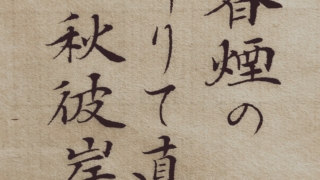 香煙の
りて直
秋彼岸